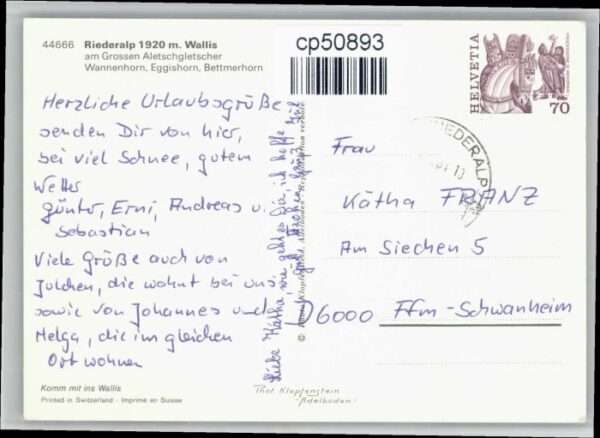 44666 Riederalp 1920 m. Wallis
am Grossen Aletschgletscher
Wannenhorn, Eggishorn, Bettmerhorn
cp50893
HELVETIA
70
RIEDERALP
Herzliche Urlaubsgrüße
senden Dir von hier,
bei viel Schnee, gutem
Wetter
Günter, Erni, Andreas u.
Sebastian
Viele Grüße auch von
Julchen, die wohnt bei uns
sowie von Johannes und
Helga, die im gleichen
Ort wohnen
Liebe Käthe, wie geht es Dir, ich hoffe
Frau
Kätha FRANZ
Am Siechen 5
D6000 Ffm-Schwanheim
Komm mit ins Wallis
Printed in Switzerland - Imprimé en Suisse
Phot. Klopfenstein
Adelboden